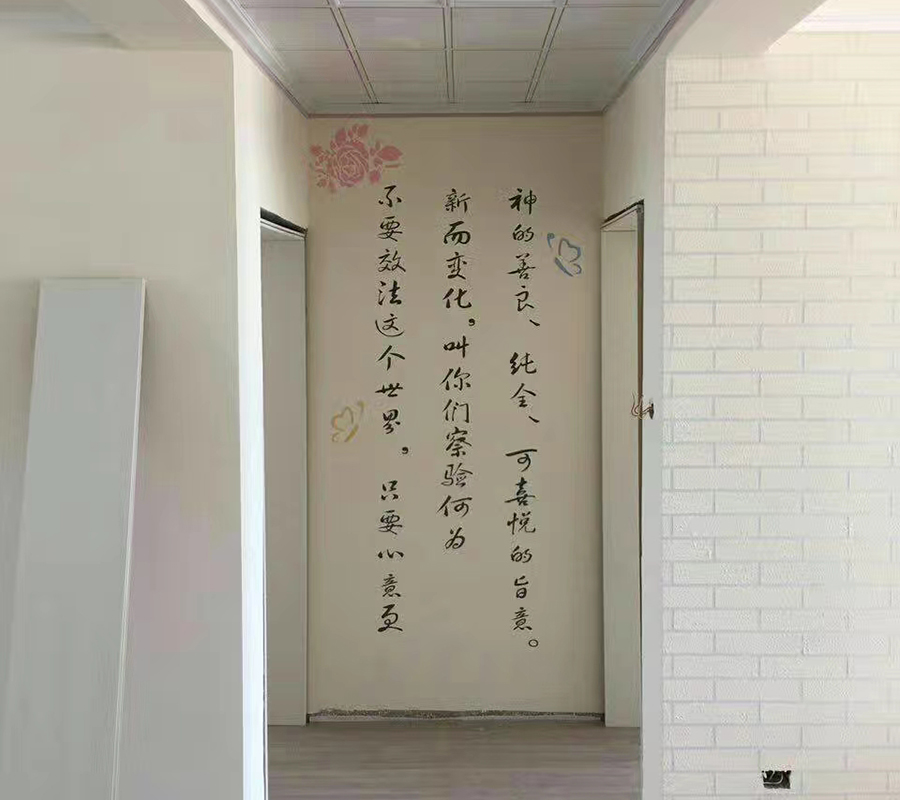 不要效法这个世界，只要心意更
新而变化，叫你们察验何为
神的善良、纯全、可喜悦的旨意。